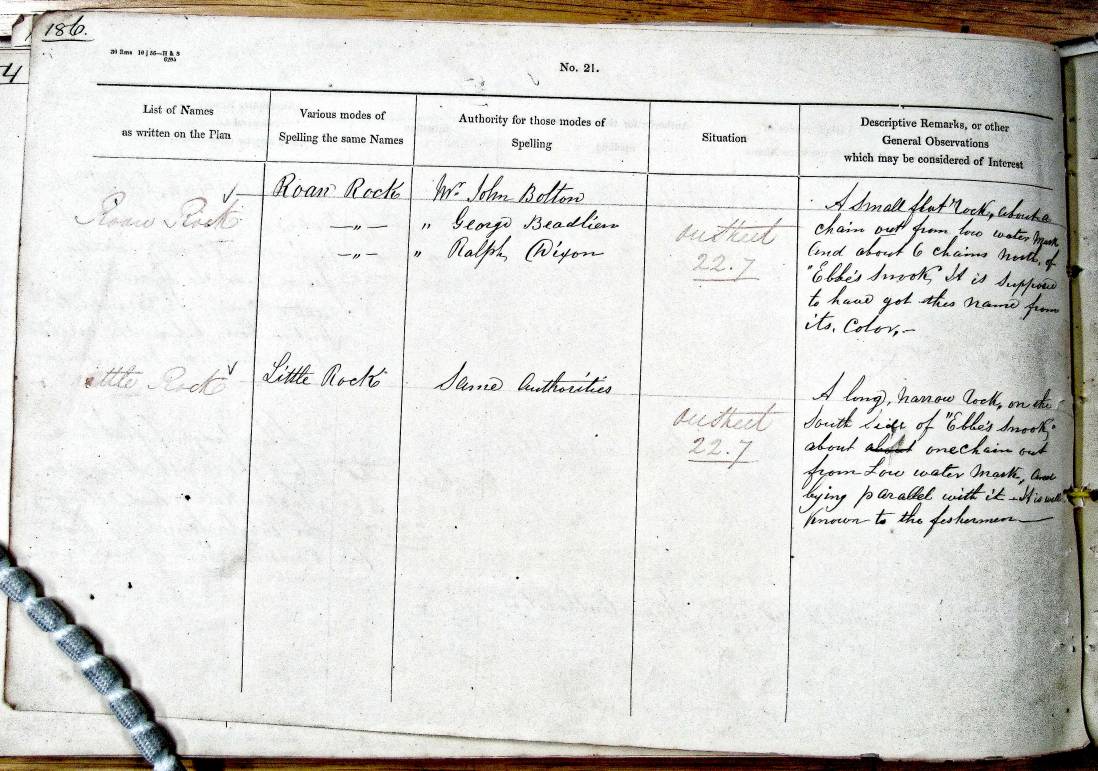 186.
4
No. 21.
List of Names
as written on the Plan
Various modes of
Spelling the same Names
Authority for those modes of
Spelling
Situation
Descriptive Remarks, or other
General Observations
which may be considered of Interest
Roan Rock
Roan Rock
—„—
—„—
Mr John Bolton
„ George Beadlien
„ Ralph Dixon
on Sheet
22.7
A small flat rock, about a
chain out from low water Mark
and about 6 chains North, of
"Ebbe's Snook, It is Suppose
to have got this name from
its. Color,—
Little Rock
Little Rock
Same Authorities
on Sheet
22.7
A long, narrow rock, on the
South Side of "Ebbe's Snook,"
about about one chain out
from Low water Mark, and
lying parallel with it — It is well
Known to the fishermen —